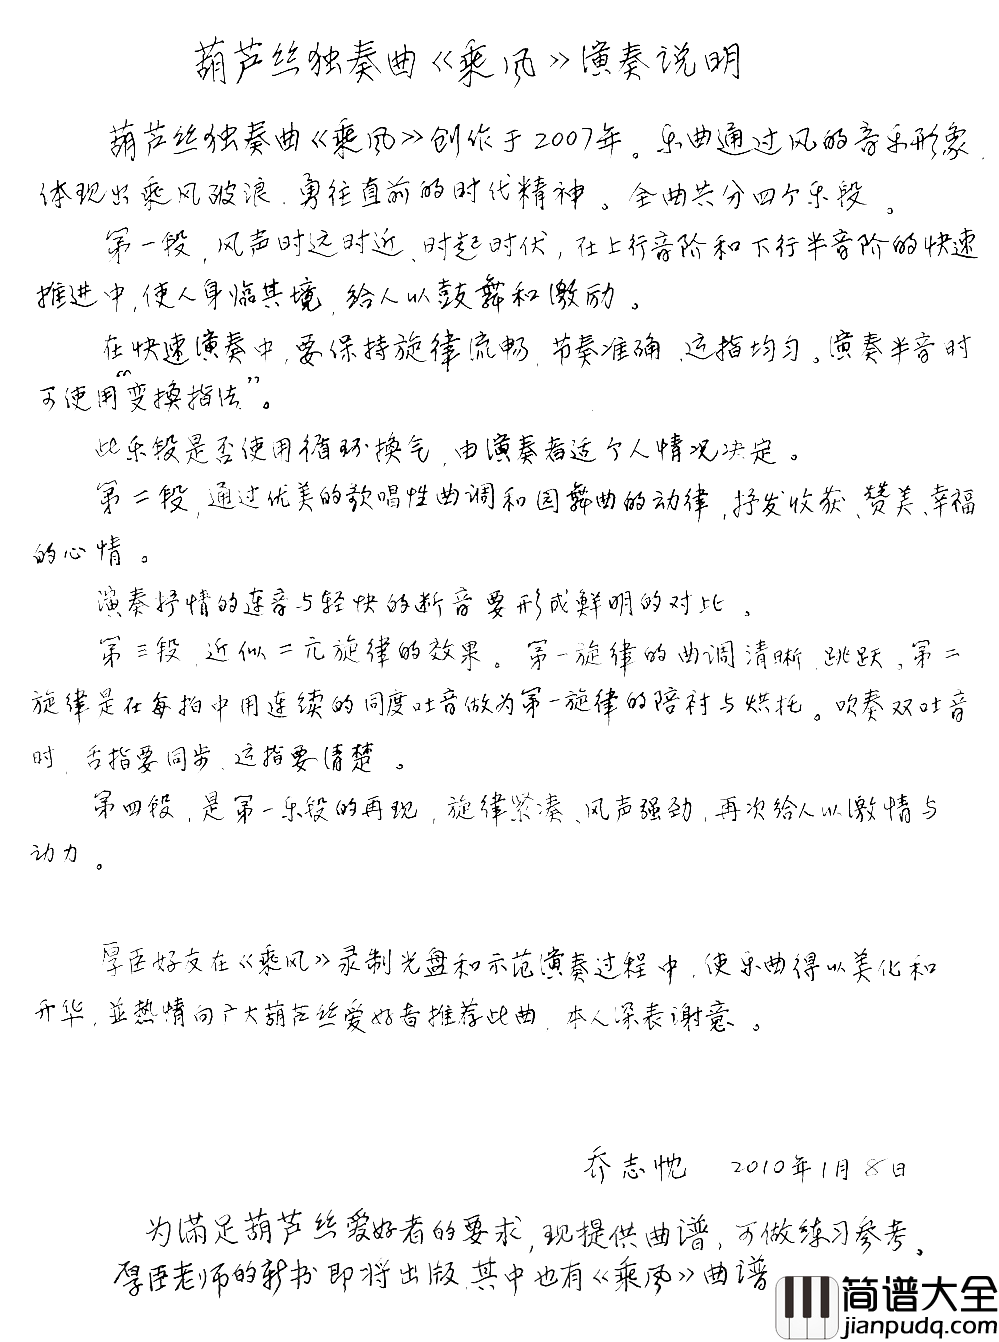 葫芦丝独奏曲《乘风》演奏说明
葫芦丝独奏曲《乘风》创作于2007年。乐曲通过风的音乐形象,
体现出乘风破浪、勇往直前的时代精神。全曲共分四个乐段。
第一段,风声时远时近、时起时伏,在上行音阶和下行半音阶的快速
推进中,使人身临其境,给人以鼓舞和激励。
在快速演奏中,要保持旋律流畅、节奏准确、运指均匀。演奏半音时
可使用“变换指法”。
此乐段是否使用循环换气,由演奏者适个人情况决定。
第二段,通过优美的歌唱性曲调和园舞曲的动律,抒发收获、赞美、幸福
的心情。
演奏抒情的连音与轻快的断音要形成鲜明的对比。
第三段,近似二元旋律的效果。第一旋律的曲调清晰、跳跃,第二
旋律是在每拍中用连续的同度吐音做为第一旋律的陪衬与烘托。吹奏双吐音
时,舌指要同步、运指要清楚。
第四段,是第一乐段的再现,旋律紧凑、风声强劲,再次给人以激情与
动力。
厚臣好友在《乘风》录制光盘和示范演奏过程中,使乐曲得以美化和
升华,並热情向广大葫芦丝爱好者推荐此曲,本人深表谢意。
乔志忱 2010年1月8日
为满足葫芦丝爱好者的要求,现提供曲谱,可做练习参考。
厚臣老师的新书即将出版,其中也有《乘风》曲谱
简谱大全
jianpudq.com